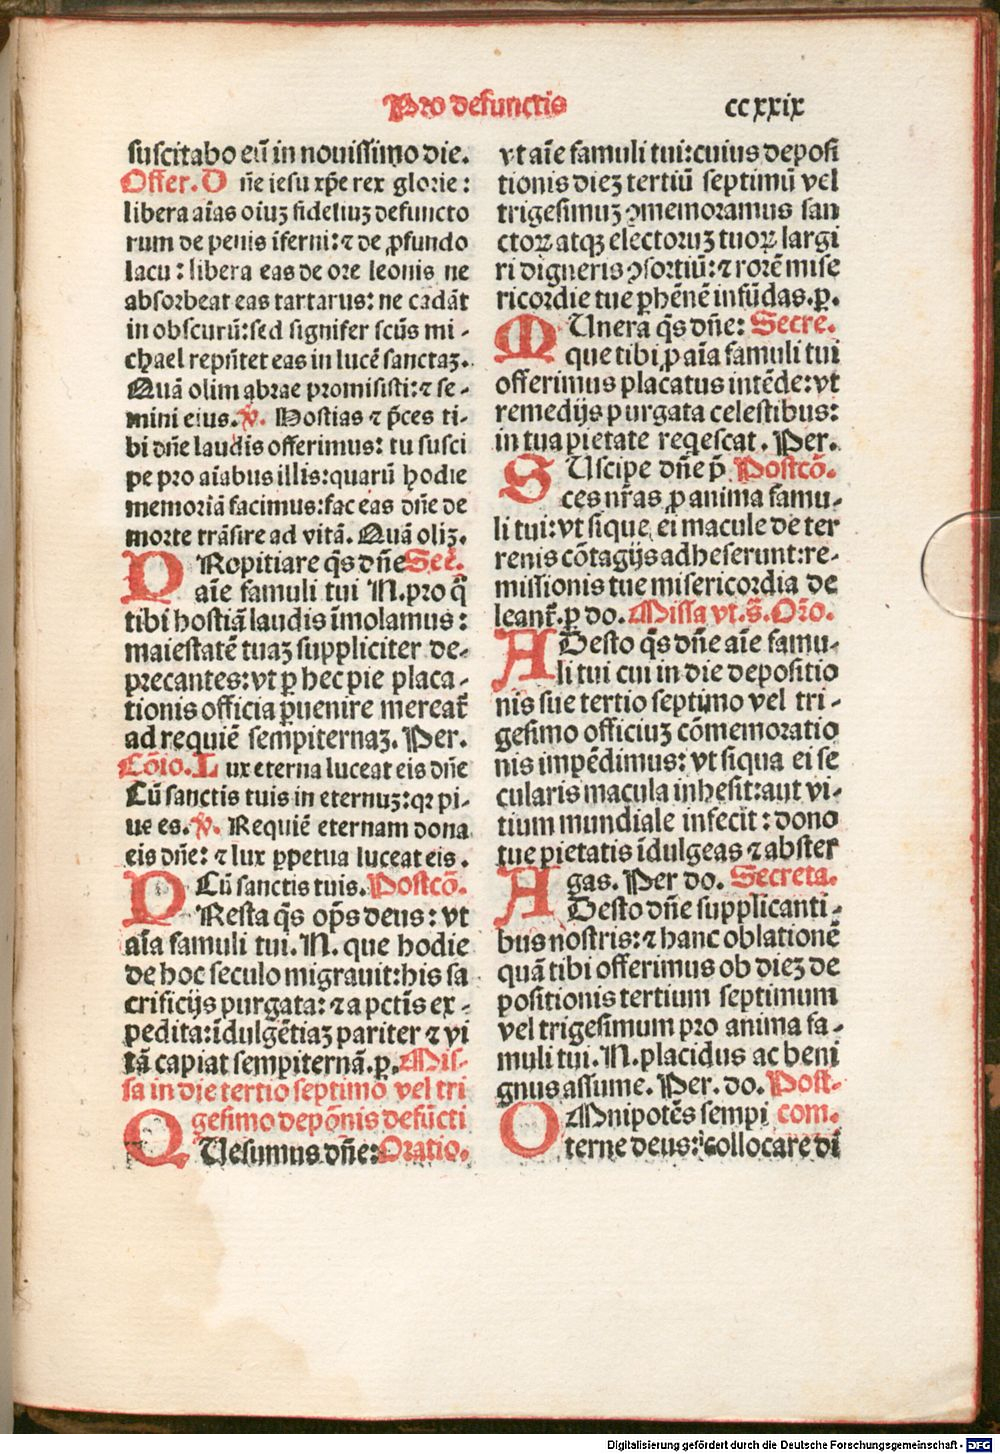 Pro defunctis ccxxix
suscitabo eū in nouissimo die.
Offer. D ñe iesu xp̄e rex glorie:
libera aīas oīuꝫ fideliuꝫ defuncto
rum de penis īferni: ⁊ de ꝓfundo
lacu: libera eas de ore leonis ne
absorbeat eas tartarus: ne cadāt
in obscurū: sed signifer scūs mi-
chael repn̄tet eas in lucē sanctaꝫ.
Quā olim abrae promisisti: ⁊ se-
mini eius. ℣. Hostias ⁊ p̄ces ti-
bi dn̄e laudis offerimus: tu susci
pe pro aīabus illis: quarū hodie
memoriā facimus: fac eas dn̄e de
morte trāsire ad vitā. Quā oliꝫ.
PRopitiare q̄s dn̄e Sec̄.
aīe famuli tui N. pro q̄
tibi hostiā laudis īmolamus:
maiestatē tuaꝫ suppliciter de-
precantes: vt ꝑ hec pie placa-
tionis officia ꝑuenire mereat̄
ad requiē sempiternaꝫ. Per.
Cōio. L ux eterna luceat eis dn̄e
Cū sanctis tuis in eternuꝫ: qꝛ pi-
us es. ℣. Requiē eternam dona
eis dn̄e: ⁊ lux ꝑpetua luceat eis.
Cū sanctis tuis. Postcō.
PResta q̄s op̄s deus: vt
aīa famuli tui. N. que hodie
de hoc seculo migrauit: his sa
crificijs purgata: ⁊ a pctīs ex-
pedita: īdulgētiaꝫ pariter ⁊ vi
tā capiat sempiternā. ꝑ. Mis-
sa in die tertio septimo vel tri
gesimo depōnis defūcti
QUesumus dn̄e: Oratio.
vt aīe famuli tui: cuius deposi
tionis dieꝫ tertiū septimū vel
trigesimuꝫ ꝯmemoramus san
ctoꝝ atqꝫ electoruꝫ tuoꝝ largi
ri digneris ꝯsortiū: ⁊ rorē mise
ricordie tue ꝑhēnē infūdas. ꝑ.
MUnera q̄s dn̄e: Secre.
que tibi ꝓ aīa famuli tui
offerimus placatus intēde: vt
remedijs purgata celestibus:
in tua pietate reqescat. Per.
SUscipe dn̄e p̄ Postcō.
ces nr̄as ꝓ anima famu-
li tui: vt si que ei macule de ter
renis cōtagijs adheserunt: re-
missionis tue misericordia de
leant̄. ꝑ do. Missa vt. s̄. Or̄o.
ADesto q̄s dn̄e aīe famu-
li tui cui in die depositio
nis sue tertio septimo vel tri-
gesimo officiuꝫ cōmemoratio
nis impēdimus: vt siqua ei se
cularis macula inhesit: aut vi-
tium mundiale infecit: dono
tue pietatis īdulgeas ⁊ abster
gas. Per do. Secreta.
ADesto dn̄e supplicanti-
bus nostris: ⁊ hanc oblationē
quā tibi offerimus ob dieꝫ de
positionis tertium septimum
vel trigesimum pro anima fa-
muli tui. N. placidus ac beni
gnus assume. Per. do. Post-
OMnipotēs sempi com.
terne deus: collocare di
Digitalisierung gefördert durch die Deutsche Forschungsgemeinschaft - DFG